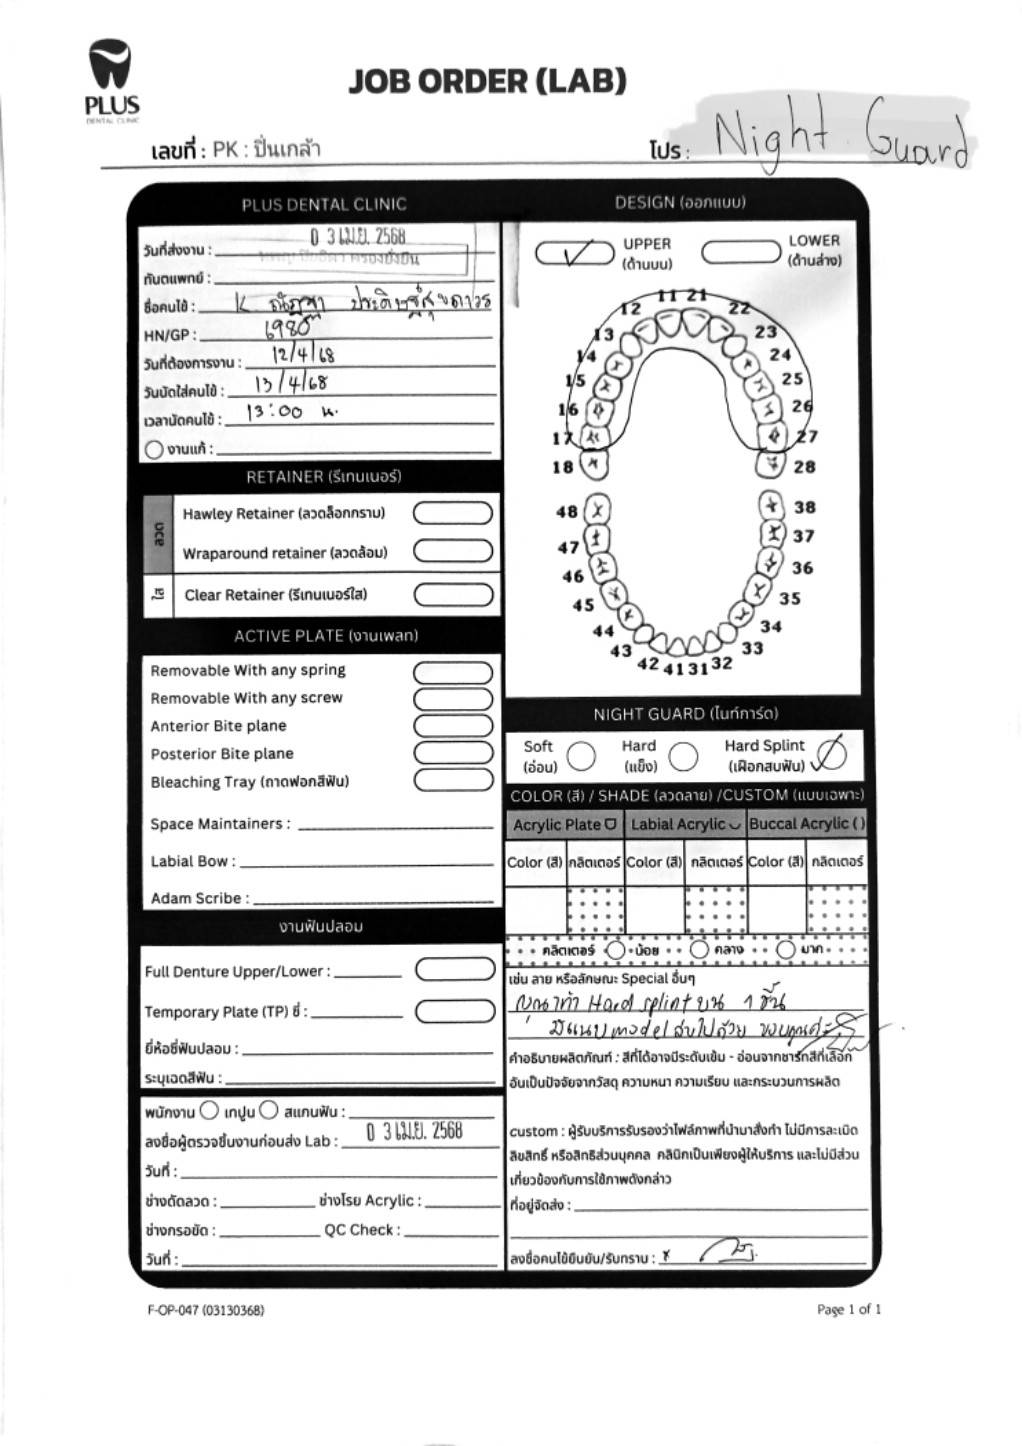 PLUS
DENTAL CLINIC
JOB ORDER (LAB)
เลขที่ : PK : ปิ่นเกล้า
โปร : Night Guard
PLUS DENTAL CLINIC
วันที่ส่งงาน : 0 3 เม.ย. 2568
ทันตแพทย์ :
ชื่อคนไข้ : K ณัฏฐา ประดิษฐ์สุขถาวร
HN/GP : 6980
วันที่ต้องการงาน : 12/4/68
วันนัดใส่คนไข้ : 13/4/68
เวลานัดคนไข้ : 13:00 น.
งานแก้ :
RETAINER (รีเทนเนอร์)
ลวด
Hawley Retainer (ลวดล็อกกราม)
Wraparound retainer (ลวดล้อม)
ใส
Clear Retainer (รีเทนเนอร์ใส)
ACTIVE PLATE (งานเพลท)
Removable With any spring
Removable With any screw
Anterior Bite plane
Posterior Bite plane
Bleaching Tray (ถาดฟอกสีฟัน)
Space Maintainers :
Labial Bow :
Adam Scribe :
งานฟันปลอม
Full Denture Upper/Lower :
Temporary Plate (TP) ซี่ :
ยี่ห้อซี่ฟันปลอม :
ระบุเฉดสีฟัน :
พนักงาน เทปูน สแกนฟัน :
ลงชื่อผู้ตรวจชิ้นงานก่อนส่ง Lab : 0 3 เม.ย. 2568
วันที่ :
ช่างดัดลวด : ช่างโรย Acrylic :
ช่างกรอขัด : QC Check :
วันที่ :
DESIGN (ออกแบบ)
UPPER
(ด้านบน)
LOWER
(ด้านล่าง)
11 21
12 22
13 23
14 24
15 25
16 26
17 27
18 28
48 38
47 37
46 36
45 35
44 34
43 33
42 41 31 32
NIGHT GUARD (ไนท์การ์ด)
Soft
(อ่อน)
Hard
(แข็ง)
Hard Splint
(เฝือกสบฟัน)
COLOR (สี) / SHADE (ลวดลาย) /CUSTOM (แบบเฉพาะ)
Acrylic Plate Labial Acrylic Buccal Acrylic ( )
Color (สี) กลิตเตอร์ Color (สี) กลิตเตอร์ Color (สี) กลิตเตอร์
กลิตเตอร์ น้อย กลาง มาก
เช่น ลาย หรือลักษณะ Special อื่นๆ
ทำ Hard splint บน 1 ชิ้น
มีแนบ model ไปด้วย ขอบคุณค่ะ
คำอธิบายผลิตภัณฑ์ : สีที่ได้อาจมีระดับเข้ม - อ่อนจากชาร์ทสีที่เลือก
อันเป็นปัจจัยจากวัสดุ ความหนา ความเรียบ และกระบวนการผลิต
custom : ผู้รับบริการรับรองว่าไฟล์ภาพที่นำมาสั่งทำ ไม่มีการละเมิด
ลิขสิทธิ์ หรือสิทธิส่วนบุคคล คลินิกเป็นเพียงผู้ให้บริการ และไม่มีส่วน
เกี่ยวข้องกับการใช้ภาพดังกล่าว
ที่อยู่จัดส่ง :
ลงชื่อคนไข้ยืนยัน/รับทราบ : x
F-OP-047 (03130368)
Page 1 of 1